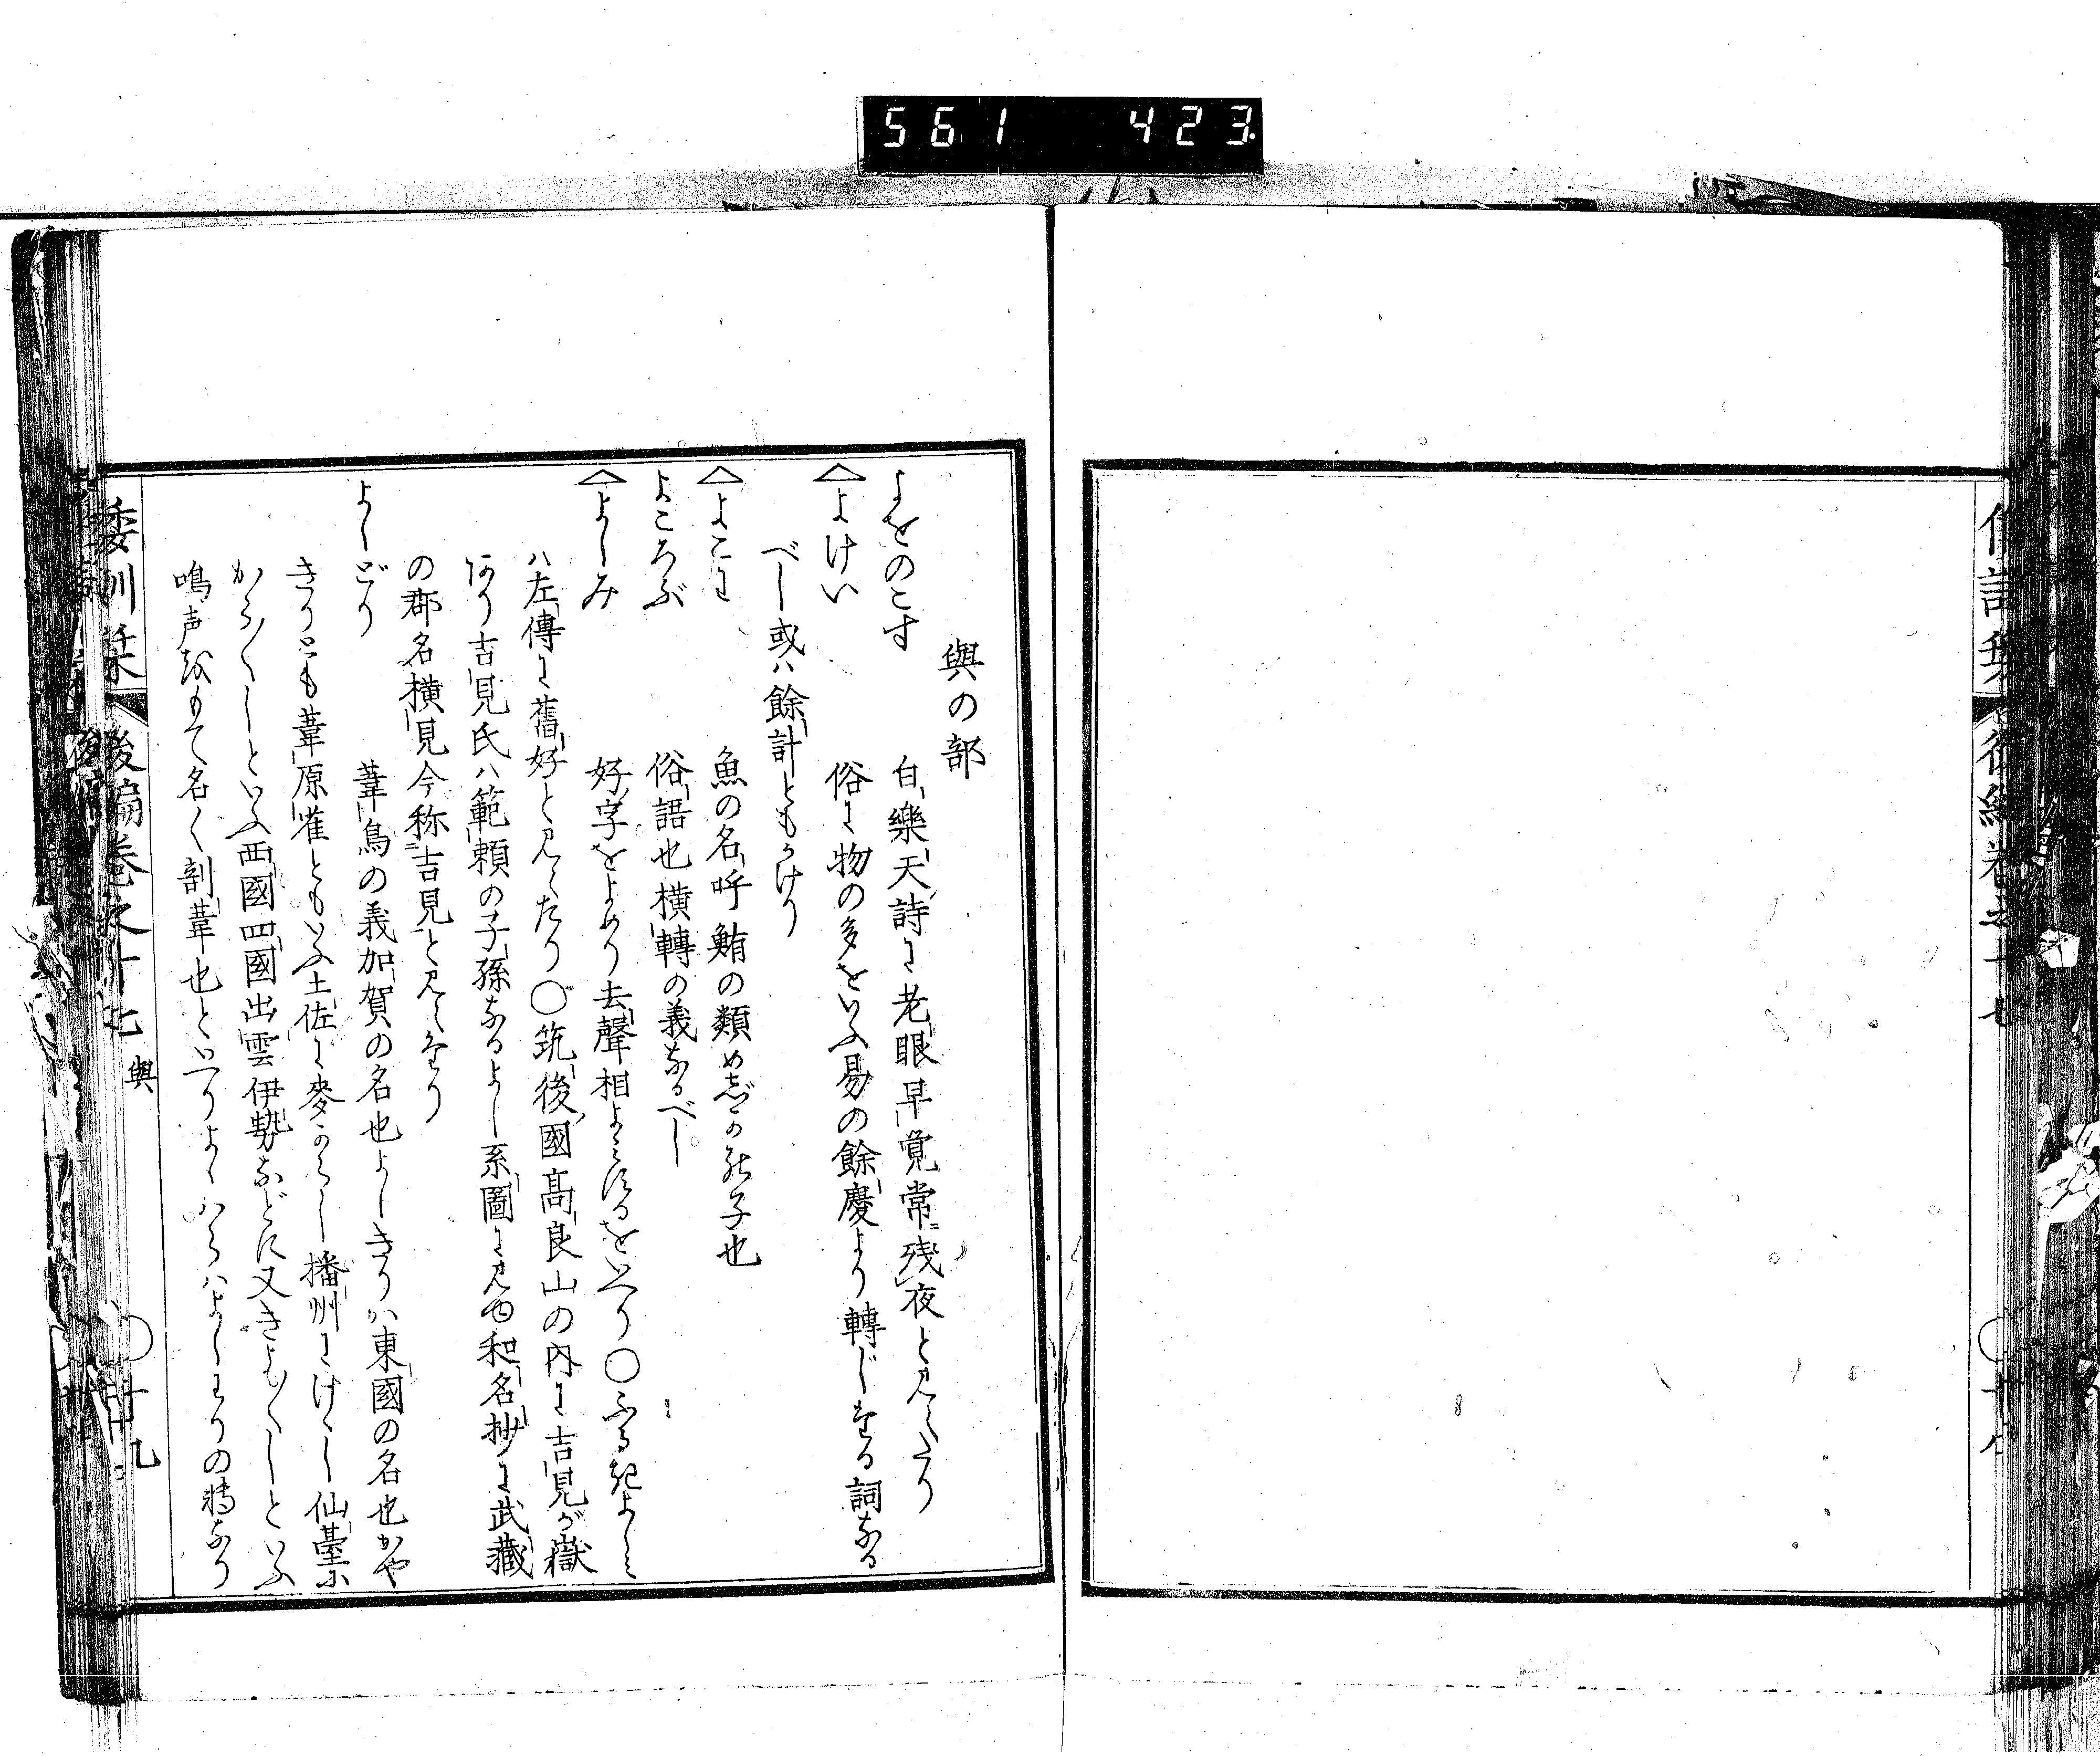 561 423
與の部
よをのこす 白樂天詩に老眼早覚常残夜と見えたり
△よけい 俗に物の多をいふ易の餘慶より轉じたる詞なる
べし或ハ餘計ともかけり
△よこわ 魚の名呼鮪の類めじかの子也
よころぶ 俗語也横轉の義なるべし
△よしみ 好字をよめり去聲相よみするをいへり○ふる起よしミ
ハ左傳に舊好と見えたり○筑後國高良山の内に吉見が嶽
あり吉見氏ハ範頼の子孫なるよし系圖に見ゆ和名抄に武藏
の郡名横見今称吉見と見えたり
よしどり 葦鳥の義加賀の名也よしきりハ東國の名也かや
きりとも葦原雀ともいふ土佐に麥からし播州にけゝし仙臺に
から〳〵しといふ西國四國出雲伊勢などに又きよ〳〵しといふ
鳴声をもて名く剖葦也といへりよくハらハよしわりの轉なり
倭訓栞 後編巻之十七 與 ○十九